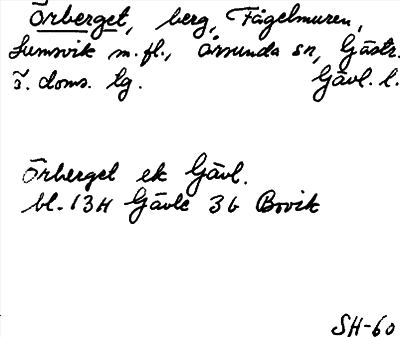 Örberget, berg, Fågelmuren,
Lumsvik m.fl., Årsunda sn, Gästr.
ö. doms. lg. Gävl. l.
Örberget ek Gävl.
bl. 13H Gävle 3b Bovik
SH-60